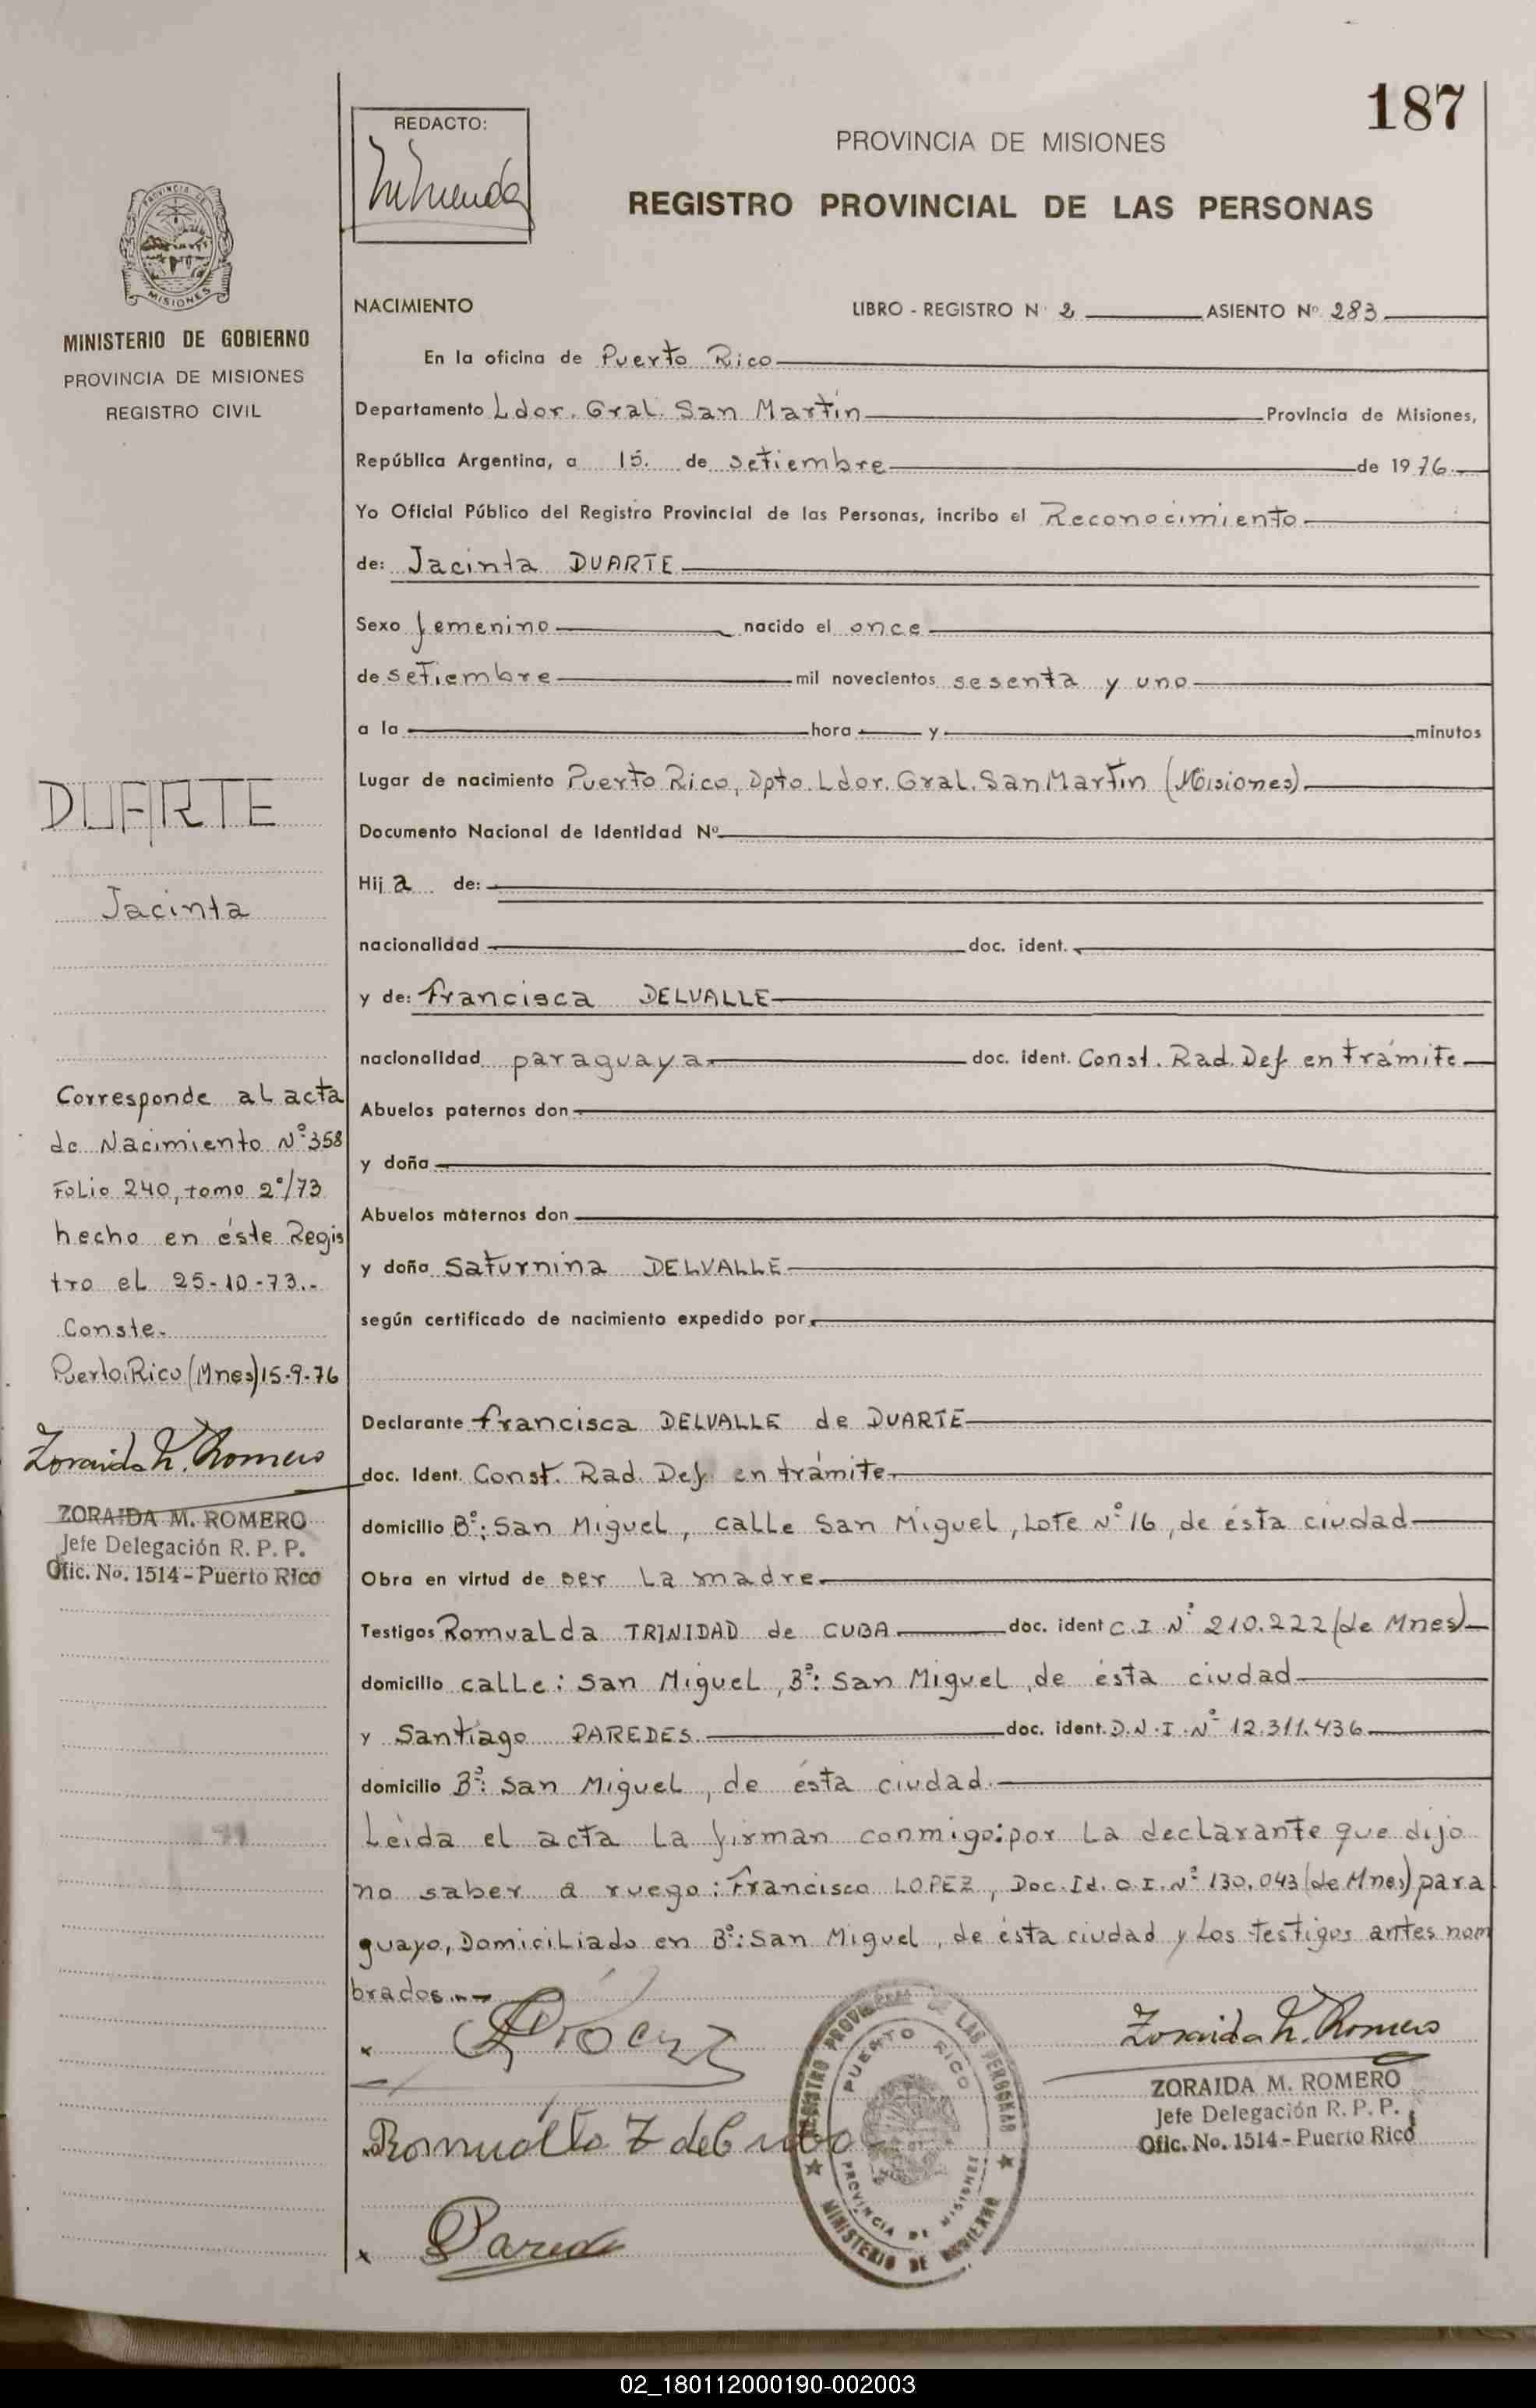 187
REDACTO:
PROVINCIA DE MISIONES
REGISTRO PROVINCIAL DE LAS PERSONAS
MISIONES
MINISTERIO DE GOBIERNO
PROVINCIA DE MISIONES
REGISTRO CIVIL
NACIMIENTO LIBRO - REGISTRO N 2 ASIENTO Nº 283
En la oficina de Puerto Rico
Departamento Ldor. Gral. San Martín Provincia de Misiones,
República Argentina, a 15. de setiembre de 1976.
Yo Oficial Público del Registro Provincial de las Personas, incribo el Reconocimiento
de: Jacinta DUARTE
Sexo femenino nacido el once
de setiembre mil novecientos sesenta y uno
a la hora y minutos
Lugar de nacimiento Puerto Rico, Dpto. Ldor. Gral. San Martín (Misiones)
Documento Nacional de Identidad Nº
Hija de:
nacionalidad doc. ident.
y de: Francisca DELVALLE
nacionalidad paraguaya doc. ident. Const. Rad. Def en trámite
Abuelos paternos don
y doña
Abuelos maternos don
y doña Saturnina DELVALLE
según certificado de nacimiento expedido por
Declarante Francisca DELVALLE de DUARTE
doc. Ident. Const. Rad. Def. en trámite
domicilio Bº: San Miguel, calle San Miguel, Lote Nº 16, de ésta ciudad
Obra en virtud de ser la madre
Testigos Romualda TRINIDAD de CUBA doc. ident C.I. Nº 210.222 (de Mnes)
domicilio calle: San Miguel, Bº: San Miguel, de ésta ciudad
y Santiago PAREDES doc. ident. D.N.I. Nº 12.311.436
domicilio Bº: San Miguel, de ésta ciudad.
Leída el acta la firman conmigo: por la declarante que dijo
no saber a ruego: Francisco LOPEZ, Doc. Id. C.I. Nº 130.043 (de Mnes) para
guayo, Domiciliado en Bº: San Miguel, de ésta ciudad y los testigos antes nom
brados.-
DUARTE
Jacinta
Corresponde al acta
de Nacimiento Nº 358
Folio 240, tomo 2º/73
hecho en éste Regis
tro el 25-10-73.-
Conste.
Puerto Rico (Mnes) 15-9-76
Zoraida M. Romero
ZORAIDA M. ROMERO
Jefe Delegación R. P. P.
Ofic. No. 1514 - Puerto Rico
REGISTRO PROVINCIAL DE LAS PERSONAS
PUERTO RICO
PROVINCIA DE MISIONES
MINISTERIO DE GOBIERNO
Zoraida M. Romero
ZORAIDA M. ROMERO
Jefe Delegación R. P. P.
Ofic. No. 1514 - Puerto Rico
02_180112000190-002003